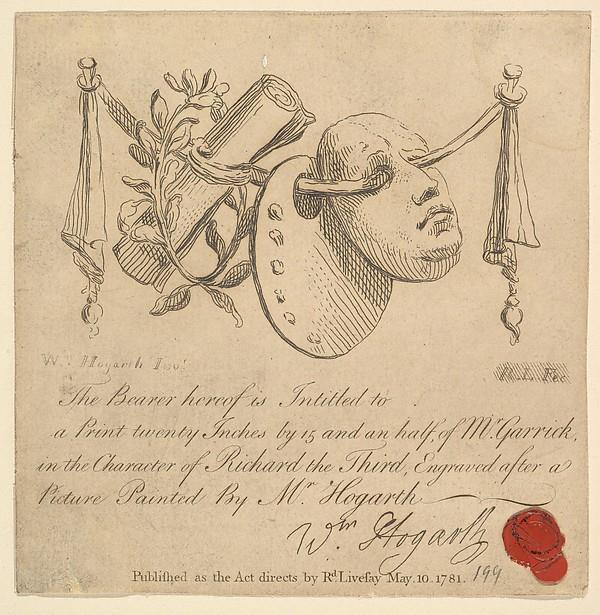 W.m Hogarth Inv.t
R.L. Fec.
The Bearer hereof is Intitled to
a Print twenty Inches by 15 and an half, of M.r Garrick,
in the Character of Richard the Third, Engraved after a
Picture Painted By M.r Hogarth
W.m Hogarth
Publiſhed as the Act directs by R.d Liveſay May. 10. 1781. 199